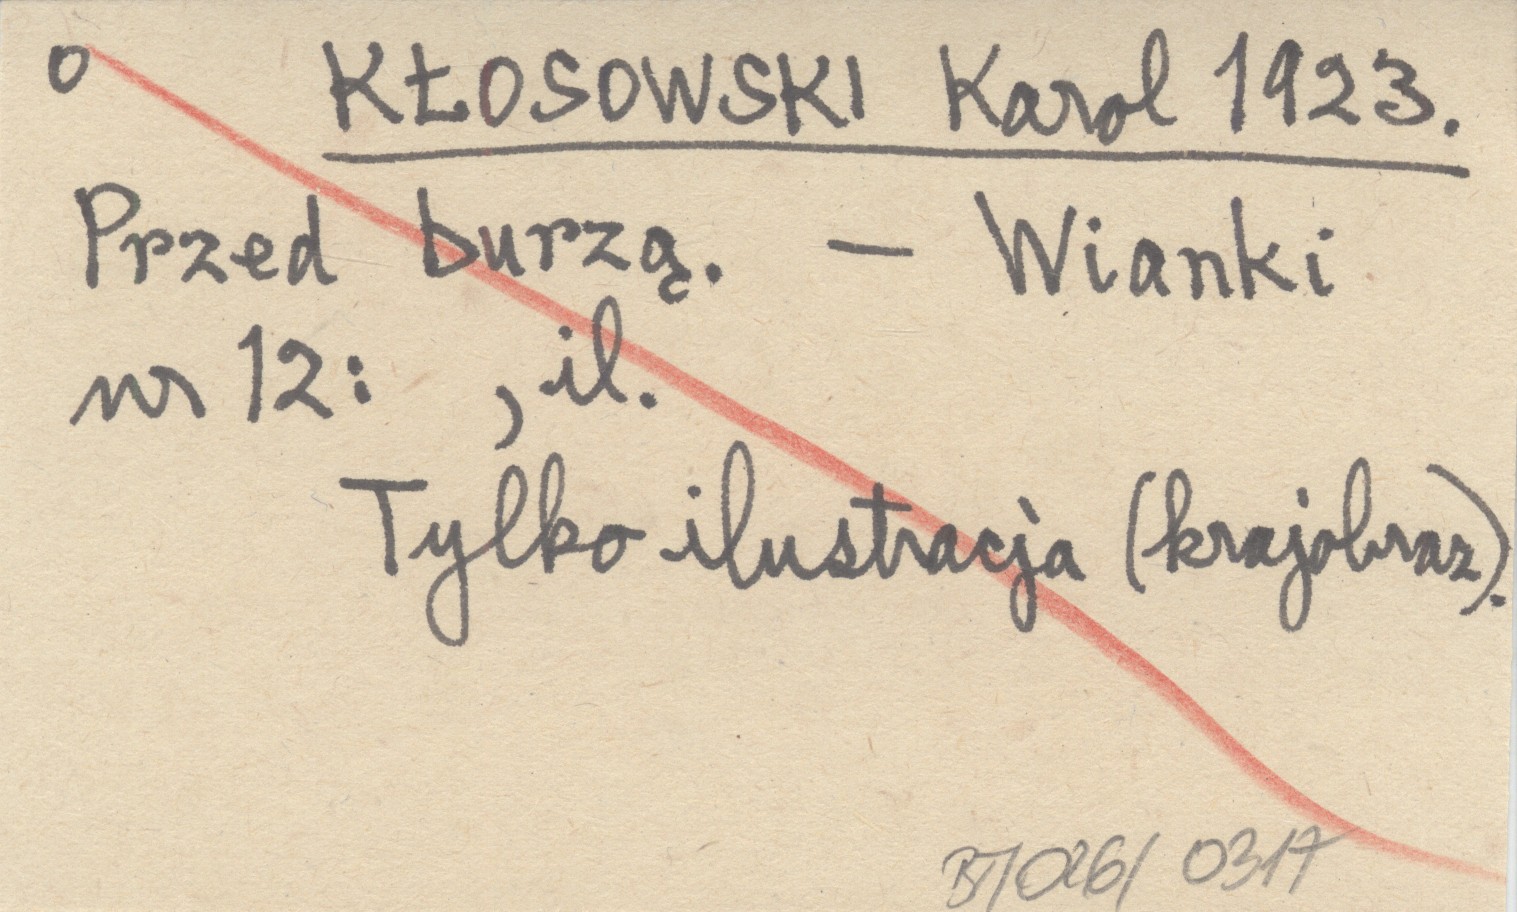 o KŁOSOWSKI Karol 1923.
Przed burzą. — Wianki
nr 12: , il.
Tylko ilustracja (krajobraz).
BT/026/ 0317